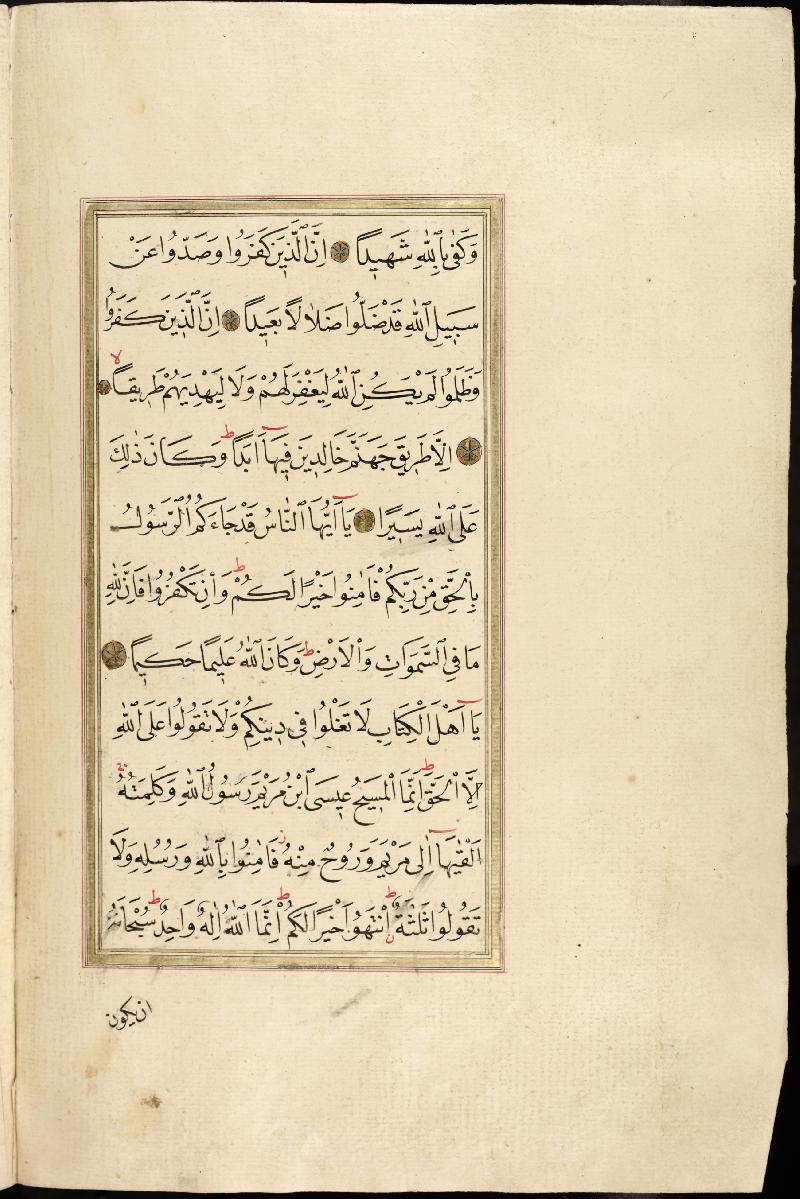 وَكَفٰى بِاللّٰهِ شَهِيدًا اِنَّ الَّذِينَ كَفَرُوا وَصَدُّوا عَنْ
سَبِيلِ اللّٰهِ قَدْ ضَلُّوا ضَلَالًا بَعِيدًا اِنَّ الَّذِينَ كَفَرُوا
وَظَلَمُوا لَمْ يَكُنِ اللّٰهُ لِيَغْفِرَ لَهُمْ وَلَا لِيَهْدِيَهُمْ طَرِيقًا لا
اِلَّا طَرِيقَ جَهَنَّمَ خَالِدِينَ فِيهَا اَبَدًا ط وَكَانَ ذٰلِكَ
عَلَى اللّٰهِ يَسِيرًا يَا اَيُّهَا النَّاسُ قَدْ جَاءَكُمُ الرَّسُولُ
بِالْحَقِّ مِنْ رَبِّكُمْ فَاٰمِنُوا خَيْرًا لَكُمْ ط وَاِنْ تَكْفُرُوا فَاِنَّ لِلّٰهِ
مَا فِي السَّمٰوَاتِ وَالْاَرْضِ ط وَكَانَ اللّٰهُ عَلِيمًا حَكِيمًا
يَا اَهْلَ الْكِتَابِ لَا تَغْلُوا فِي دِينِكُمْ وَلَا تَقُولُوا عَلَى اللّٰهِ
اِلَّا الْحَقَّ ط اِنَّمَا الْمَسِيحُ عِيسَى ابْنُ مَرْيَمَ رَسُولُ اللّٰهِ وَكَلِمَتُهُ
اَلْقٰيهَا اِلٰى مَرْيَمَ وَرُوحٌ مِنْهُ ز فَاٰمِنُوا بِاللّٰهِ وَرُسُلِهِ وَلَا
تَقُولُوا ثَلٰثَةٌ ط اِنْتَهُوا خَيْرًا لَكُمْ ط اِنَّمَا اللّٰهُ اِلٰهٌ وَاحِدٌ ط سُبْحَانَهُ
ان يكون